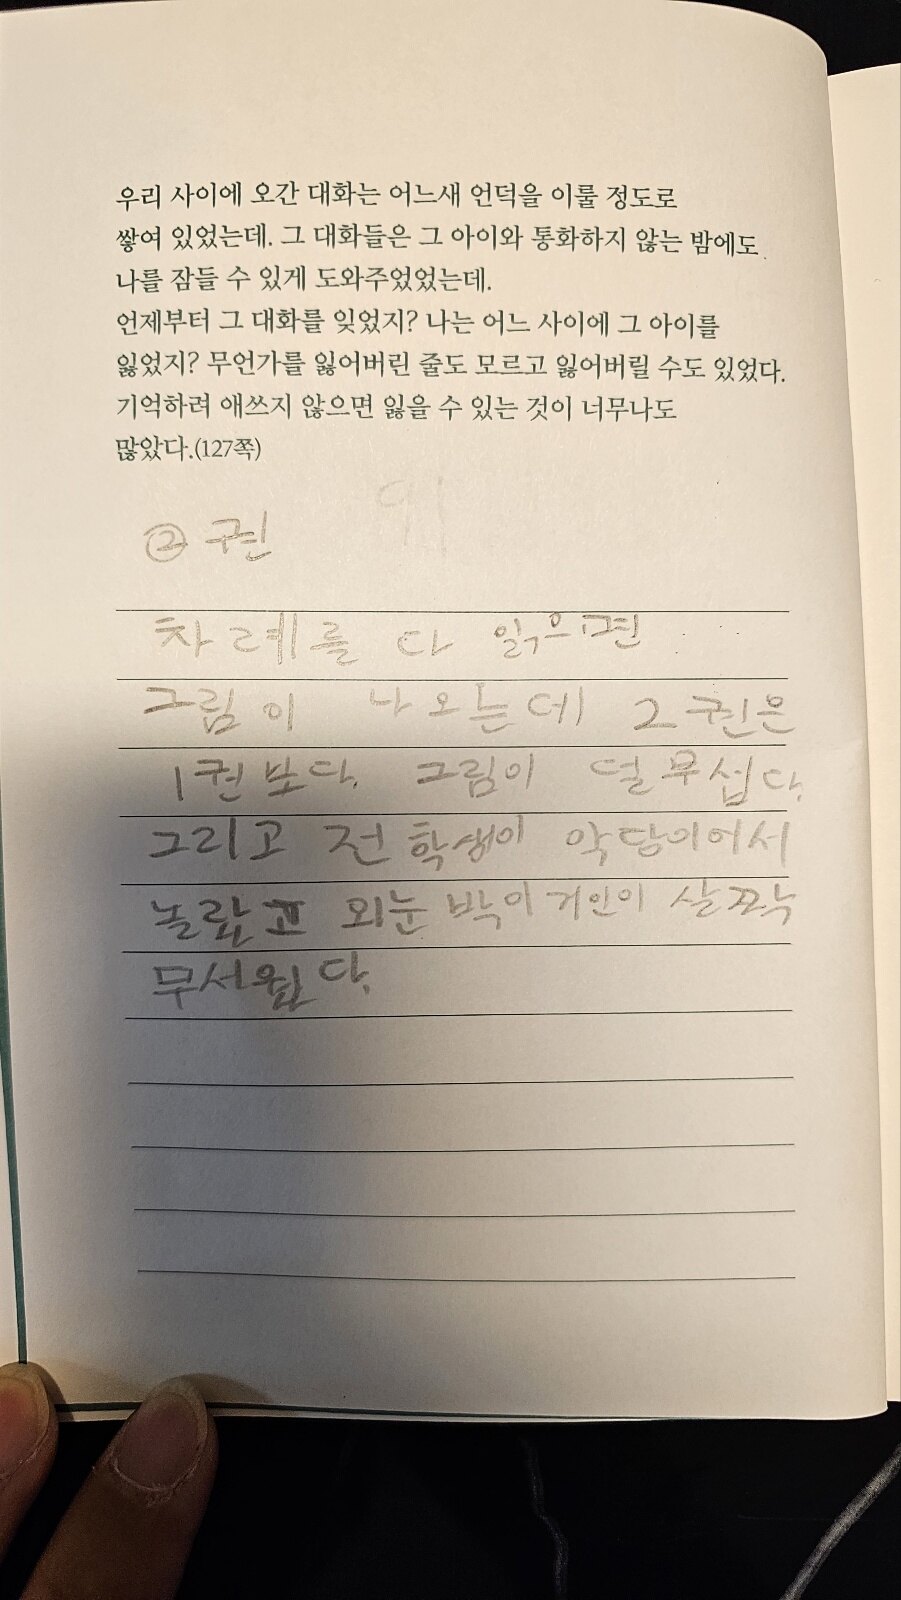 우리 사이에 오간 대화는 어느새 언덕을 이룰 정도로
쌓여 있었는데. 그 대화들은 그 아이와 통화하지 않는 밤에도
나를 잠들 수 있게 도와주었었는데.
언제부터 그 대화를 잊었지? 나는 어느 사이에 그 아이를
잃었지? 무언가를 잃어버린 줄도 모르고 잃어버릴 수도 있었다.
기억하려 애쓰지 않으면 잃을 수 있는 것이 너무나도
많았다.(127쪽)
② 권
차례를 다 읽으면
그림이 나오는데 2권은
1권보다. 그림이 덜 무섭다.
그리고 전학생이 악당이어서
놀랐고 외눈박이 거인이 살짝
무서웠다.